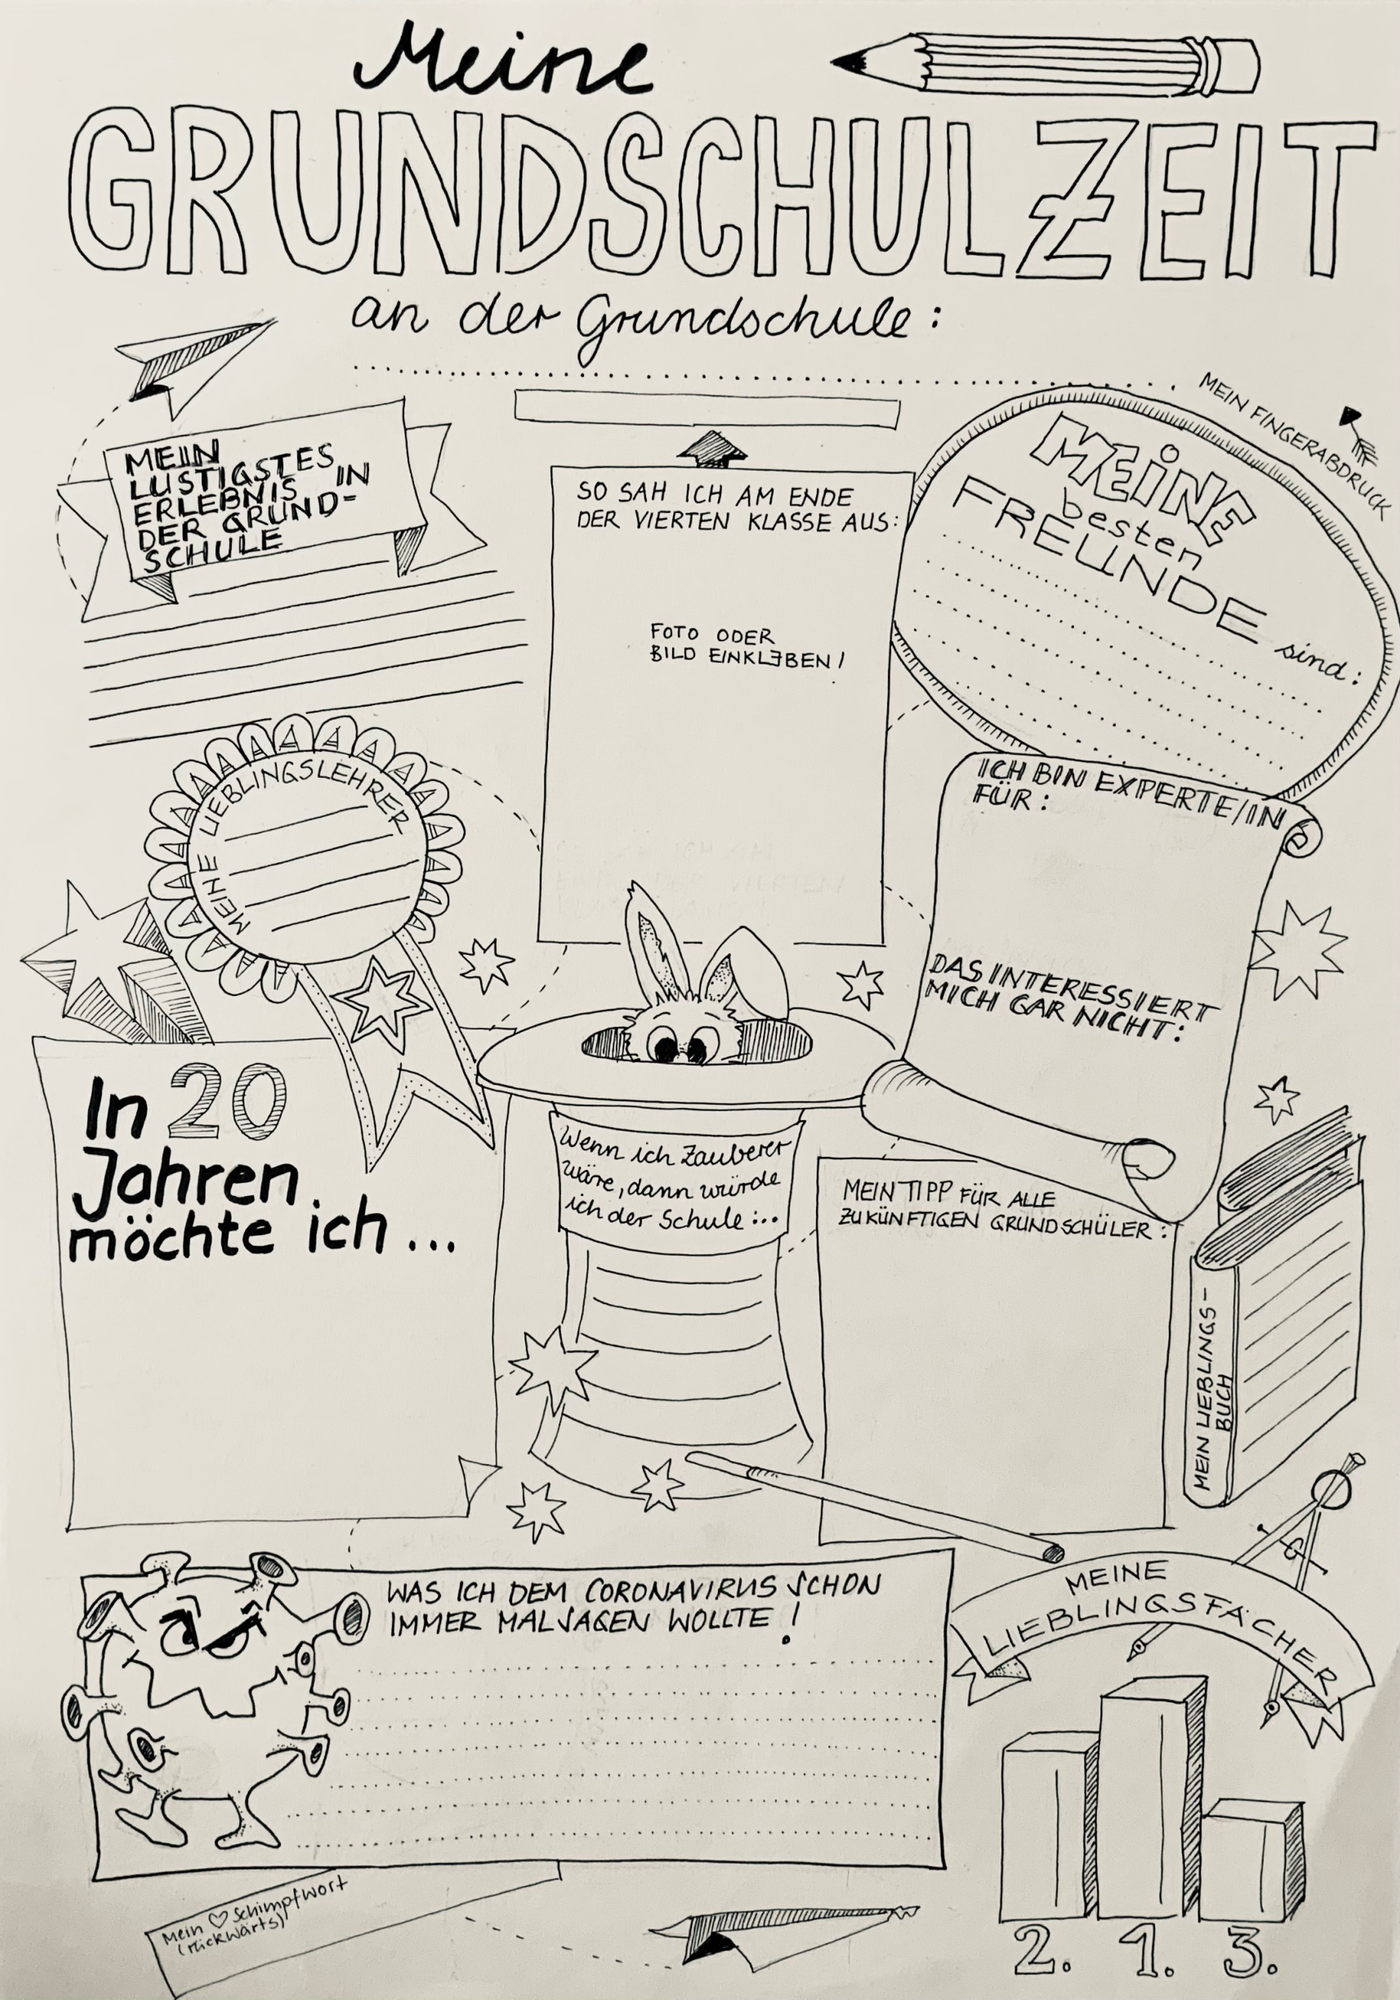 Meine
GRUNDSCHULZEIT
an der Grundschule:
MEIN FINGERABDRUCK
MEIN
LUSTIGSTES
ERLEBNIS IN
DER GRUND-
SCHULE
SO SAH ICH AM ENDE
DER VIERTEN KLASSE AUS:
FOTO ODER
BILD EINKLEBEN!
MEINE
besten
FREUNDE sind:
MEINE LIEBLINGSLEHRER
ICH BIN EXPERTE/IN
FÜR:
DAS INTERESSIERT
MICH GAR NICHT:
In 20
Jahren
möchte ich...
Wenn ich Zauberer
wäre, dann würde
ich der Schule:...
MEIN TIPP FÜR ALLE
ZUKÜNFTIGEN GRUNDSCHÜLER:
MEIN LIEBLINGS-
BUCH
WAS ICH DEM CORONAVIRUS SCHON
IMMER MAL SAGEN WOLLTE!
MEINE
LIEBLINGSFÄCHER
2. 1. 3.
Mein ♡ Schimpfwort
(rückwärts)